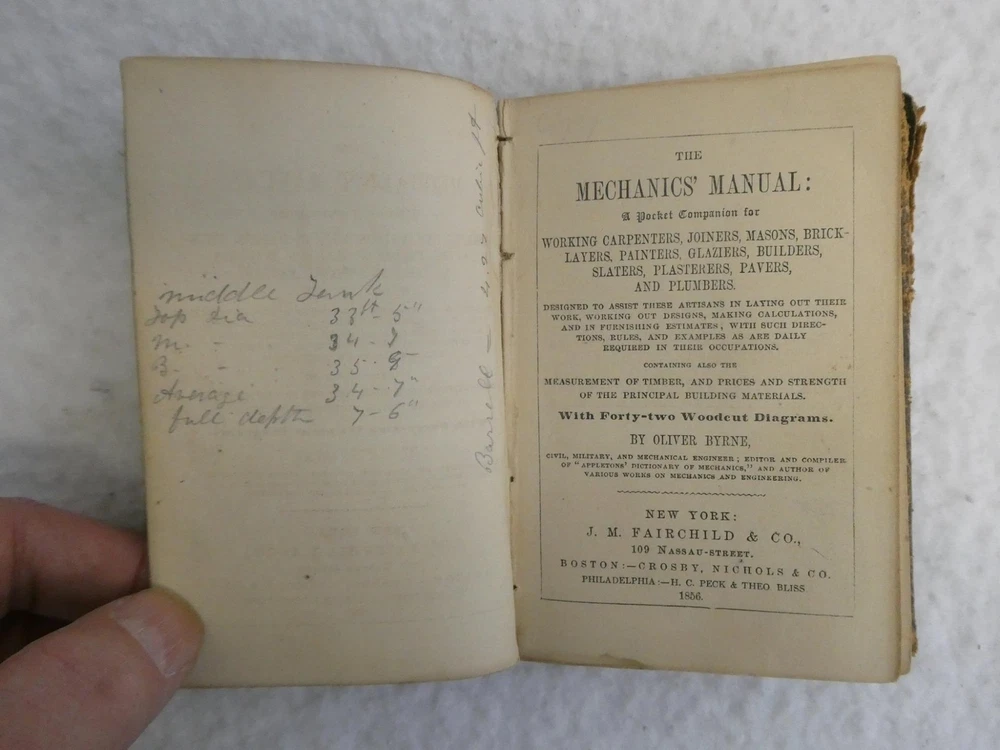 middle Tank
Top Dia 33ft - 5"
M. - 34 - 7
B. - - 35 - 8
Average 34 - 7"
full depth 7 - 6"
Barrell — 4.2
THE
MECHANICS' MANUAL:
A Pocket Companion for
WORKING CARPENTERS, JOINERS, MASONS, BRICK-
LAYERS, PAINTERS, GLAZIERS, BUILDERS,
SLATERS, PLASTERERS, PAVERS,
AND PLUMBERS.
DESIGNED TO ASSIST THESE ARTISANS IN LAYING OUT THEIR
WORK, WORKING OUT DESIGNS, MAKING CALCULATIONS,
AND IN FURNISHING ESTIMATES; WITH SUCH DIREC-
TIONS, RULES, AND EXAMPLES AS ARE DAILY
REQUIRED IN THEIR OCCUPATIONS.
CONTAINING ALSO THE
MEASUREMENT OF TIMBER, AND PRICES AND STRENGTH
OF THE PRINCIPAL BUILDING MATERIALS.
With Forty-two Woodcut Diagrams.
BY OLIVER BYRNE,
CIVIL, MILITARY, AND MECHANICAL ENGINEER; EDITOR AND COMPILER
OF "APPLETONS' DICTIONARY OF MECHANICS," AND AUTHOR OF
VARIOUS WORKS ON MECHANICS AND ENGINEERING.
NEW YORK:
J. M. FAIRCHILD & CO.,
109 NASSAU-STREET.
BOSTON:—CROSBY, NICHOLS & CO.
PHILADELPHIA:—H. C. PECK & THEO BLISS
1856.